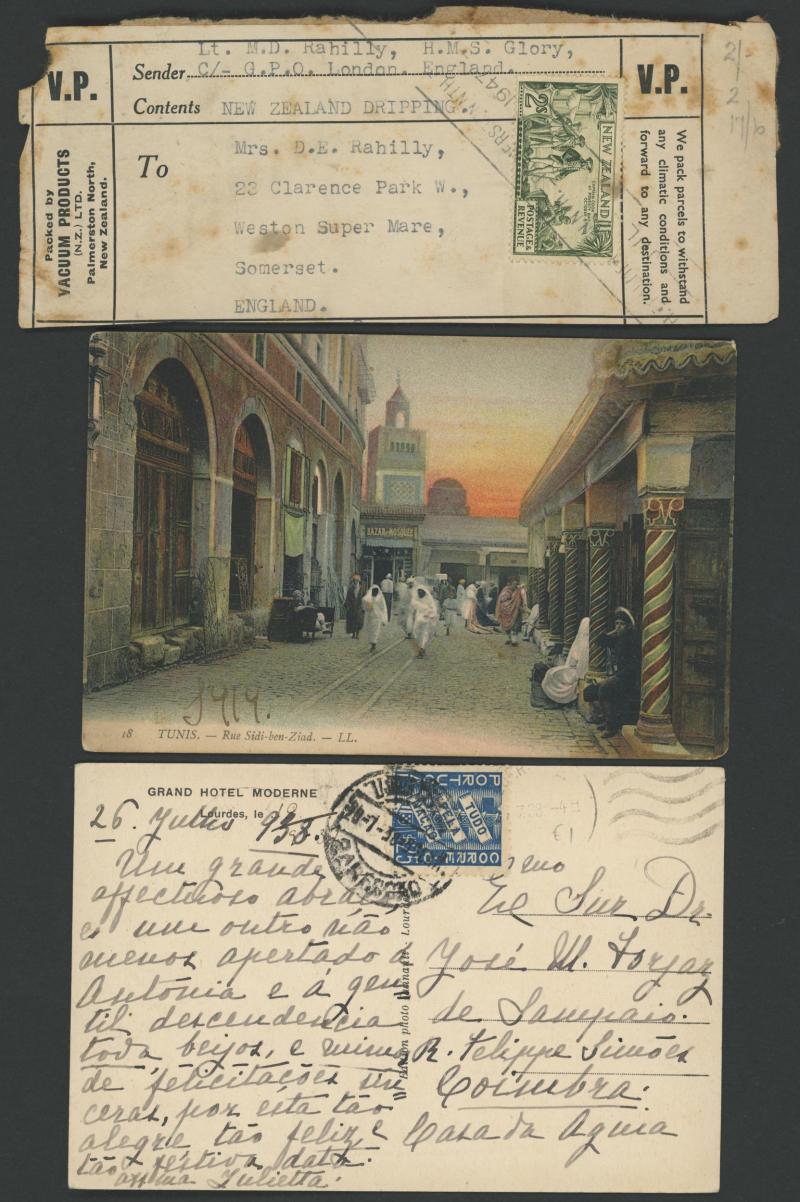 V.P.
Sender Lt. M.D. Rahilly, H.M.S. Glory,
C/- G.P.O. London. England.
Contents NEW ZEALAND DRIPPING.
V.P.
2/-
2
17/6
Packed by
VACUUM PRODUCTS
(N.Z.) LTD.
Palmerston North,
New Zealand.
To
Mrs. D.E. Rahilly,
23 Clarence Park W.,
Weston Super Mare,
Somerset.
ENGLAND.
1947
2s
NEW ZEALAND
POSTAGE &
REVENUE
We pack parcels to withstand
any climatic conditions and
forward to any destination.
BAZAR DE MOSQUEE
1919.
18 TUNIS. — Rue Sidi-ben-Ziad. — LL.
GRAND HOTEL MODERNE
Lourdes, le
26. Julho 938.
Um grande
affectuoso abraço
e um outro não
menos apertado a
Antónia e á gen
til descendencia
toda beijos, e mimo
de felicitações sin
ceras, por esta tão
alegre tão feliz e
tão festiva data.
Julietta.
PORTUGAL
TUDO
PELA
NAÇÃO
CORREIO
Lourdes
Ex Snr Dr.
José M. Forjaz
de Sampaio.
R. Felippe Simões
Coimbra.
Casa da Aguia